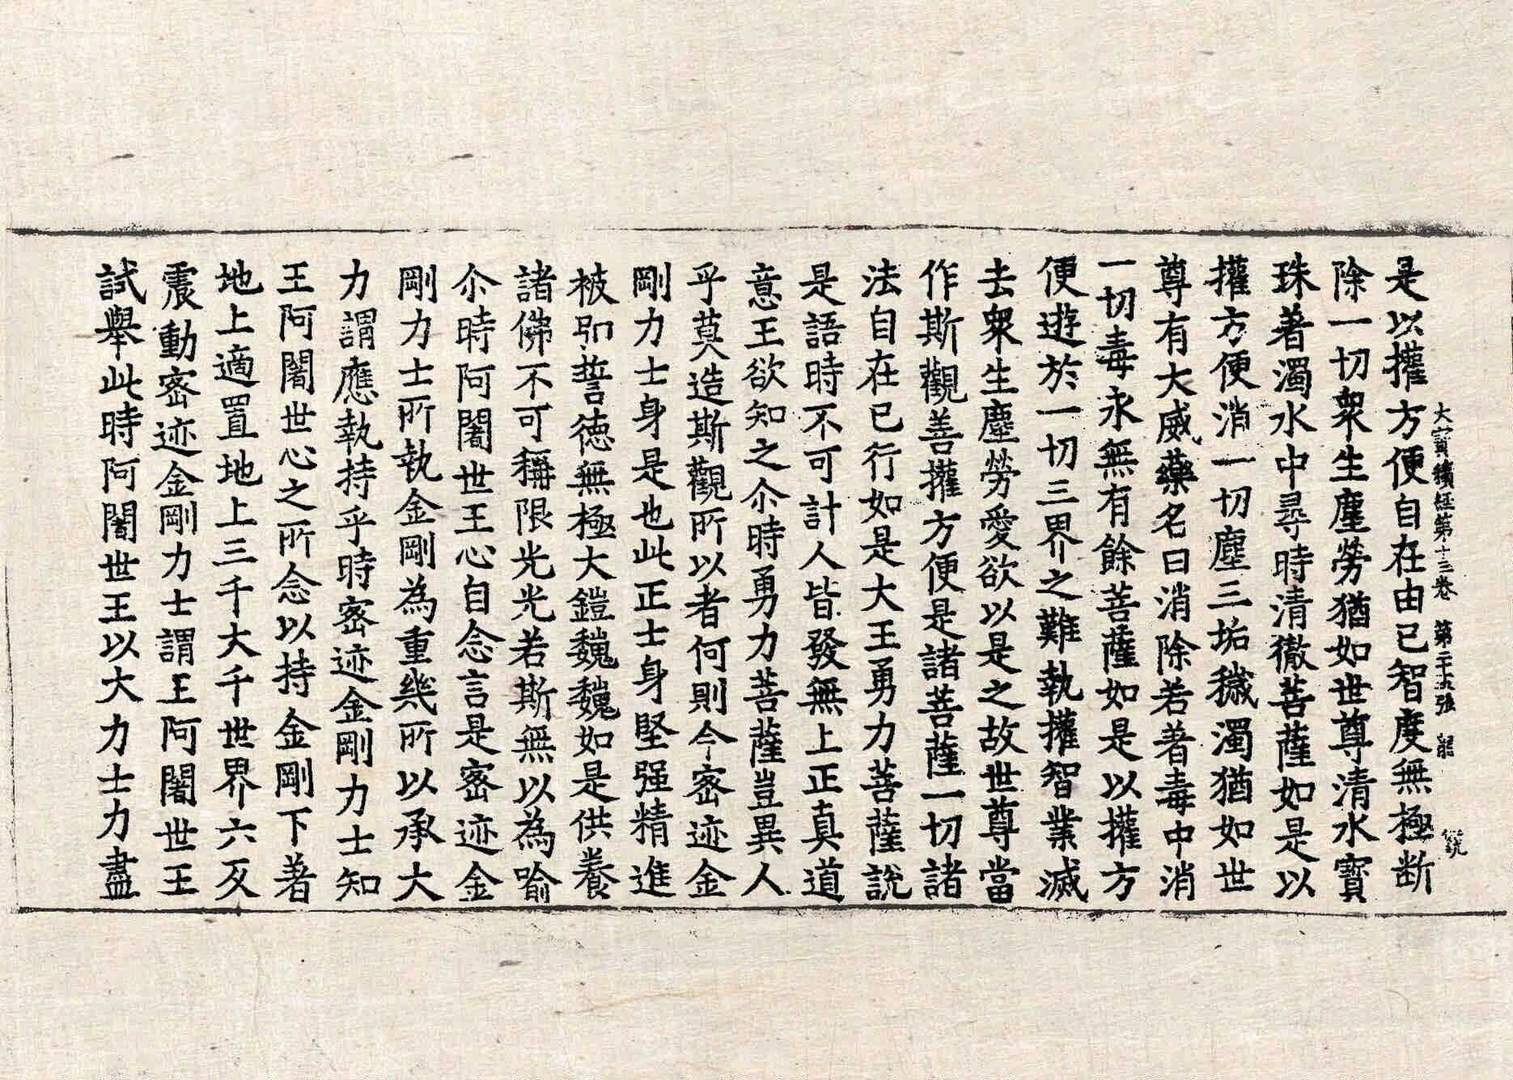 大寶積經第十三卷 第二十五張 龍
是以權方便自在由已智度無極断
除一切衆生塵勞猶如世尊清水寳
珠著濁水中尋時清徹菩薩如是以
權方便消一切塵三垢穢濁猶如世
尊有大威藥名曰消除若著毒中消
一切毒永無有餘菩薩如是以權方
便遊於一切三界之難執權智業滅
去衆生塵勞愛欲以是之故世尊當
作斯觀善權方便是諸菩薩一切諸
法自在已行如是大王勇力菩薩說
是語時不可計人皆發無上正真道
意王欲知之尒時勇力菩薩豈異人
乎莫造斯觀所以者何則今密迹金
剛力士身是也此正士身堅强精進
被弘誓德無極大鎧巍巍如是供養
諸佛不可稱限光光若斯無以為喻
尒時阿闍世王心自念言是密迹金
剛力士所執金剛為重幾所以承大
力謂應執持乎時密迹金剛力士知
王阿闍世心之所念以持金剛下著
地上適置地上三千大千世界六反
震動密迹金剛力士謂王阿闍世王
試舉此時阿闍世王以大力士力盡